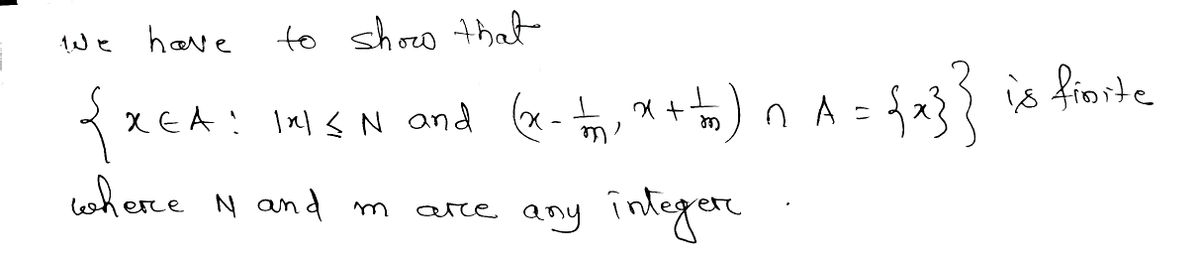 We have to show that
{ x ∈ A : |x| ≤ N and (x - 1/m, x + 1/m) ∩ A = {x} } is finite
where N and m are any integer .